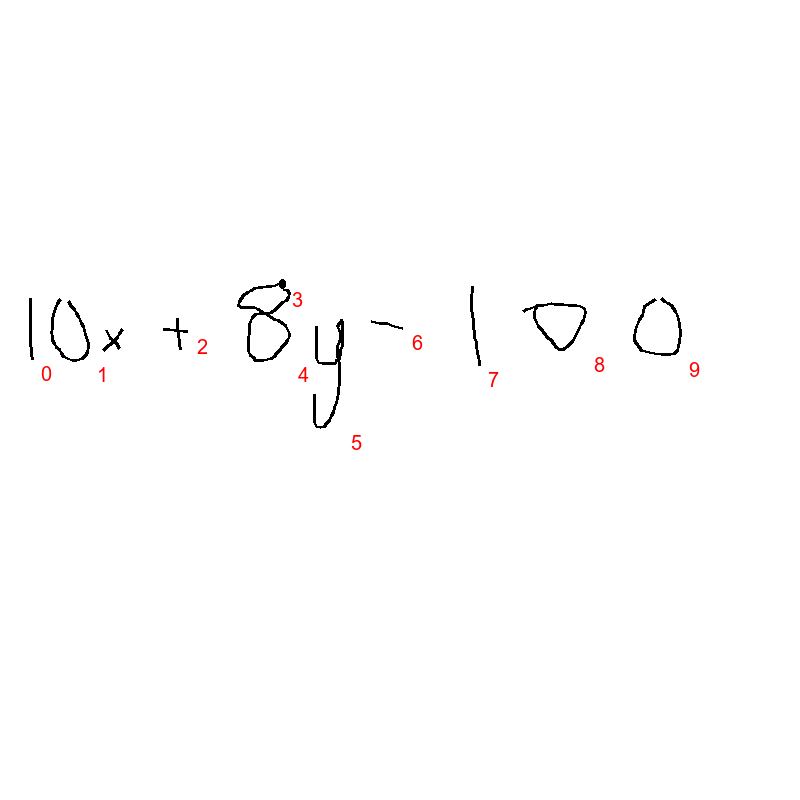 10x + 8y - 100
0 1 2 3 4 5 6 7 8 9